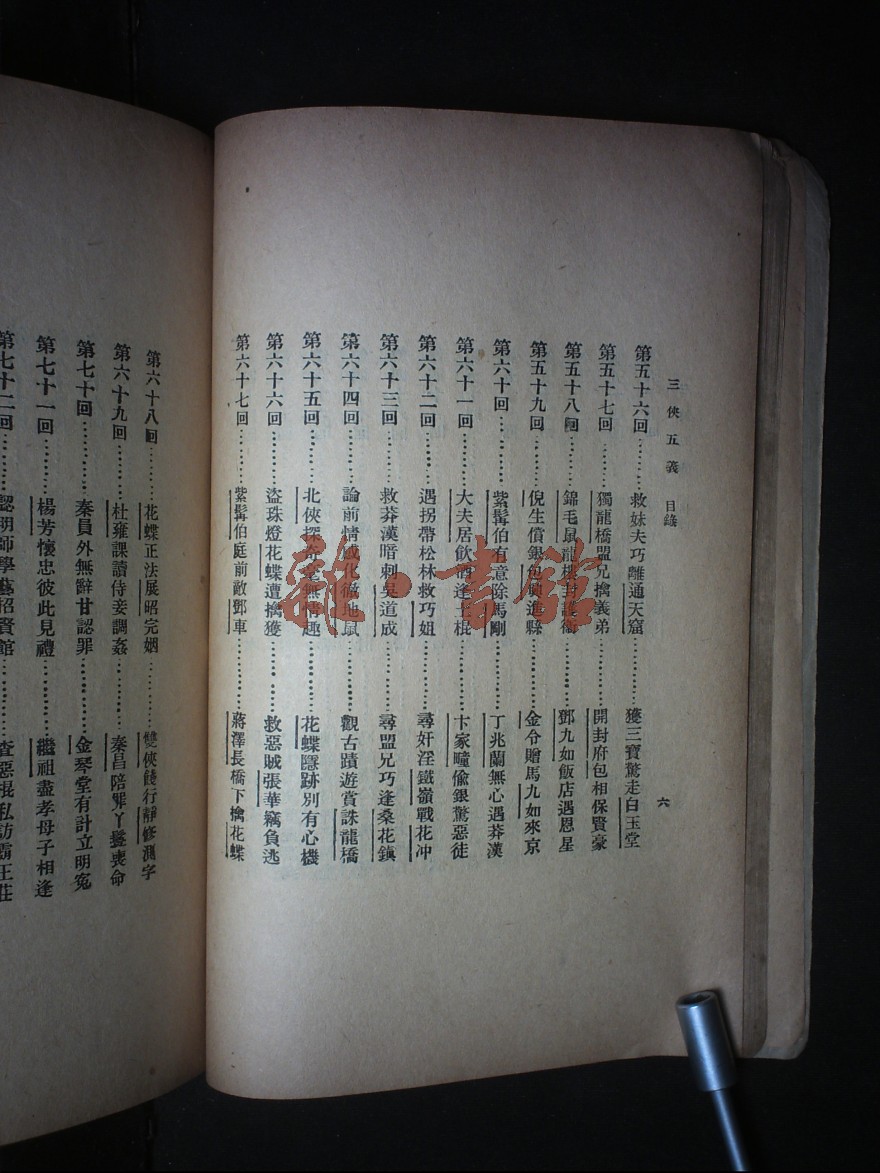 三俠五義　目錄
六
第五十六回………救妹夫巧離通天窟………獲三寶驚走白玉堂
第五十七回………獨龍橋盟兄擒義弟………開封府包相保賢豪
第五十八回………錦毛鼠龍樓封護衞………鄧九如飯店遇恩星
第五十九回………倪生償銀包興進縣………金令贈馬九如來京
第六十回………紫髯伯有意除馬剛………丁兆蘭無心遇莽漢
第六十一回………大夫居飲酒逢土棍………卞家疃偷銀驚惡徒
第六十二回………遇拐帶松林救巧姐………尋奸淫鐵嶺戰花冲
第六十三回………救莽漢暗刺吳道成………尋盟兄巧逢桑花鎮
第六十四回………論前情感化徹地鼠………觀古蹟遊賞誅龍橋
第六十五回………北俠探奇毫無情趣………花蝶隱跡別有心機
第六十六回………盜珠燈花蝶遭擒獲………救惡賊張華竊負逃
第六十七回………紫髯伯庭前敵鄧車………蔣澤長橋下擒花蝶
第六十八回………花蝶正法展昭完姻………雙俠餞行靜修測字
第六十九回………杜雍課讀侍妾調姦………秦昌陪罪丫鬟喪命
第七十回………秦員外無辭甘認罪………金琴堂有計立明寃
第七十一回………楊芳懷忠彼此見禮………繼祖盡孝母子相逢
第七十二回………認明師學藝招賢館………查惡棍私訪霸王莊
龍・書館